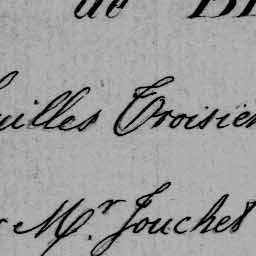 de B
uilles Troisièm
Mr. Jouchet